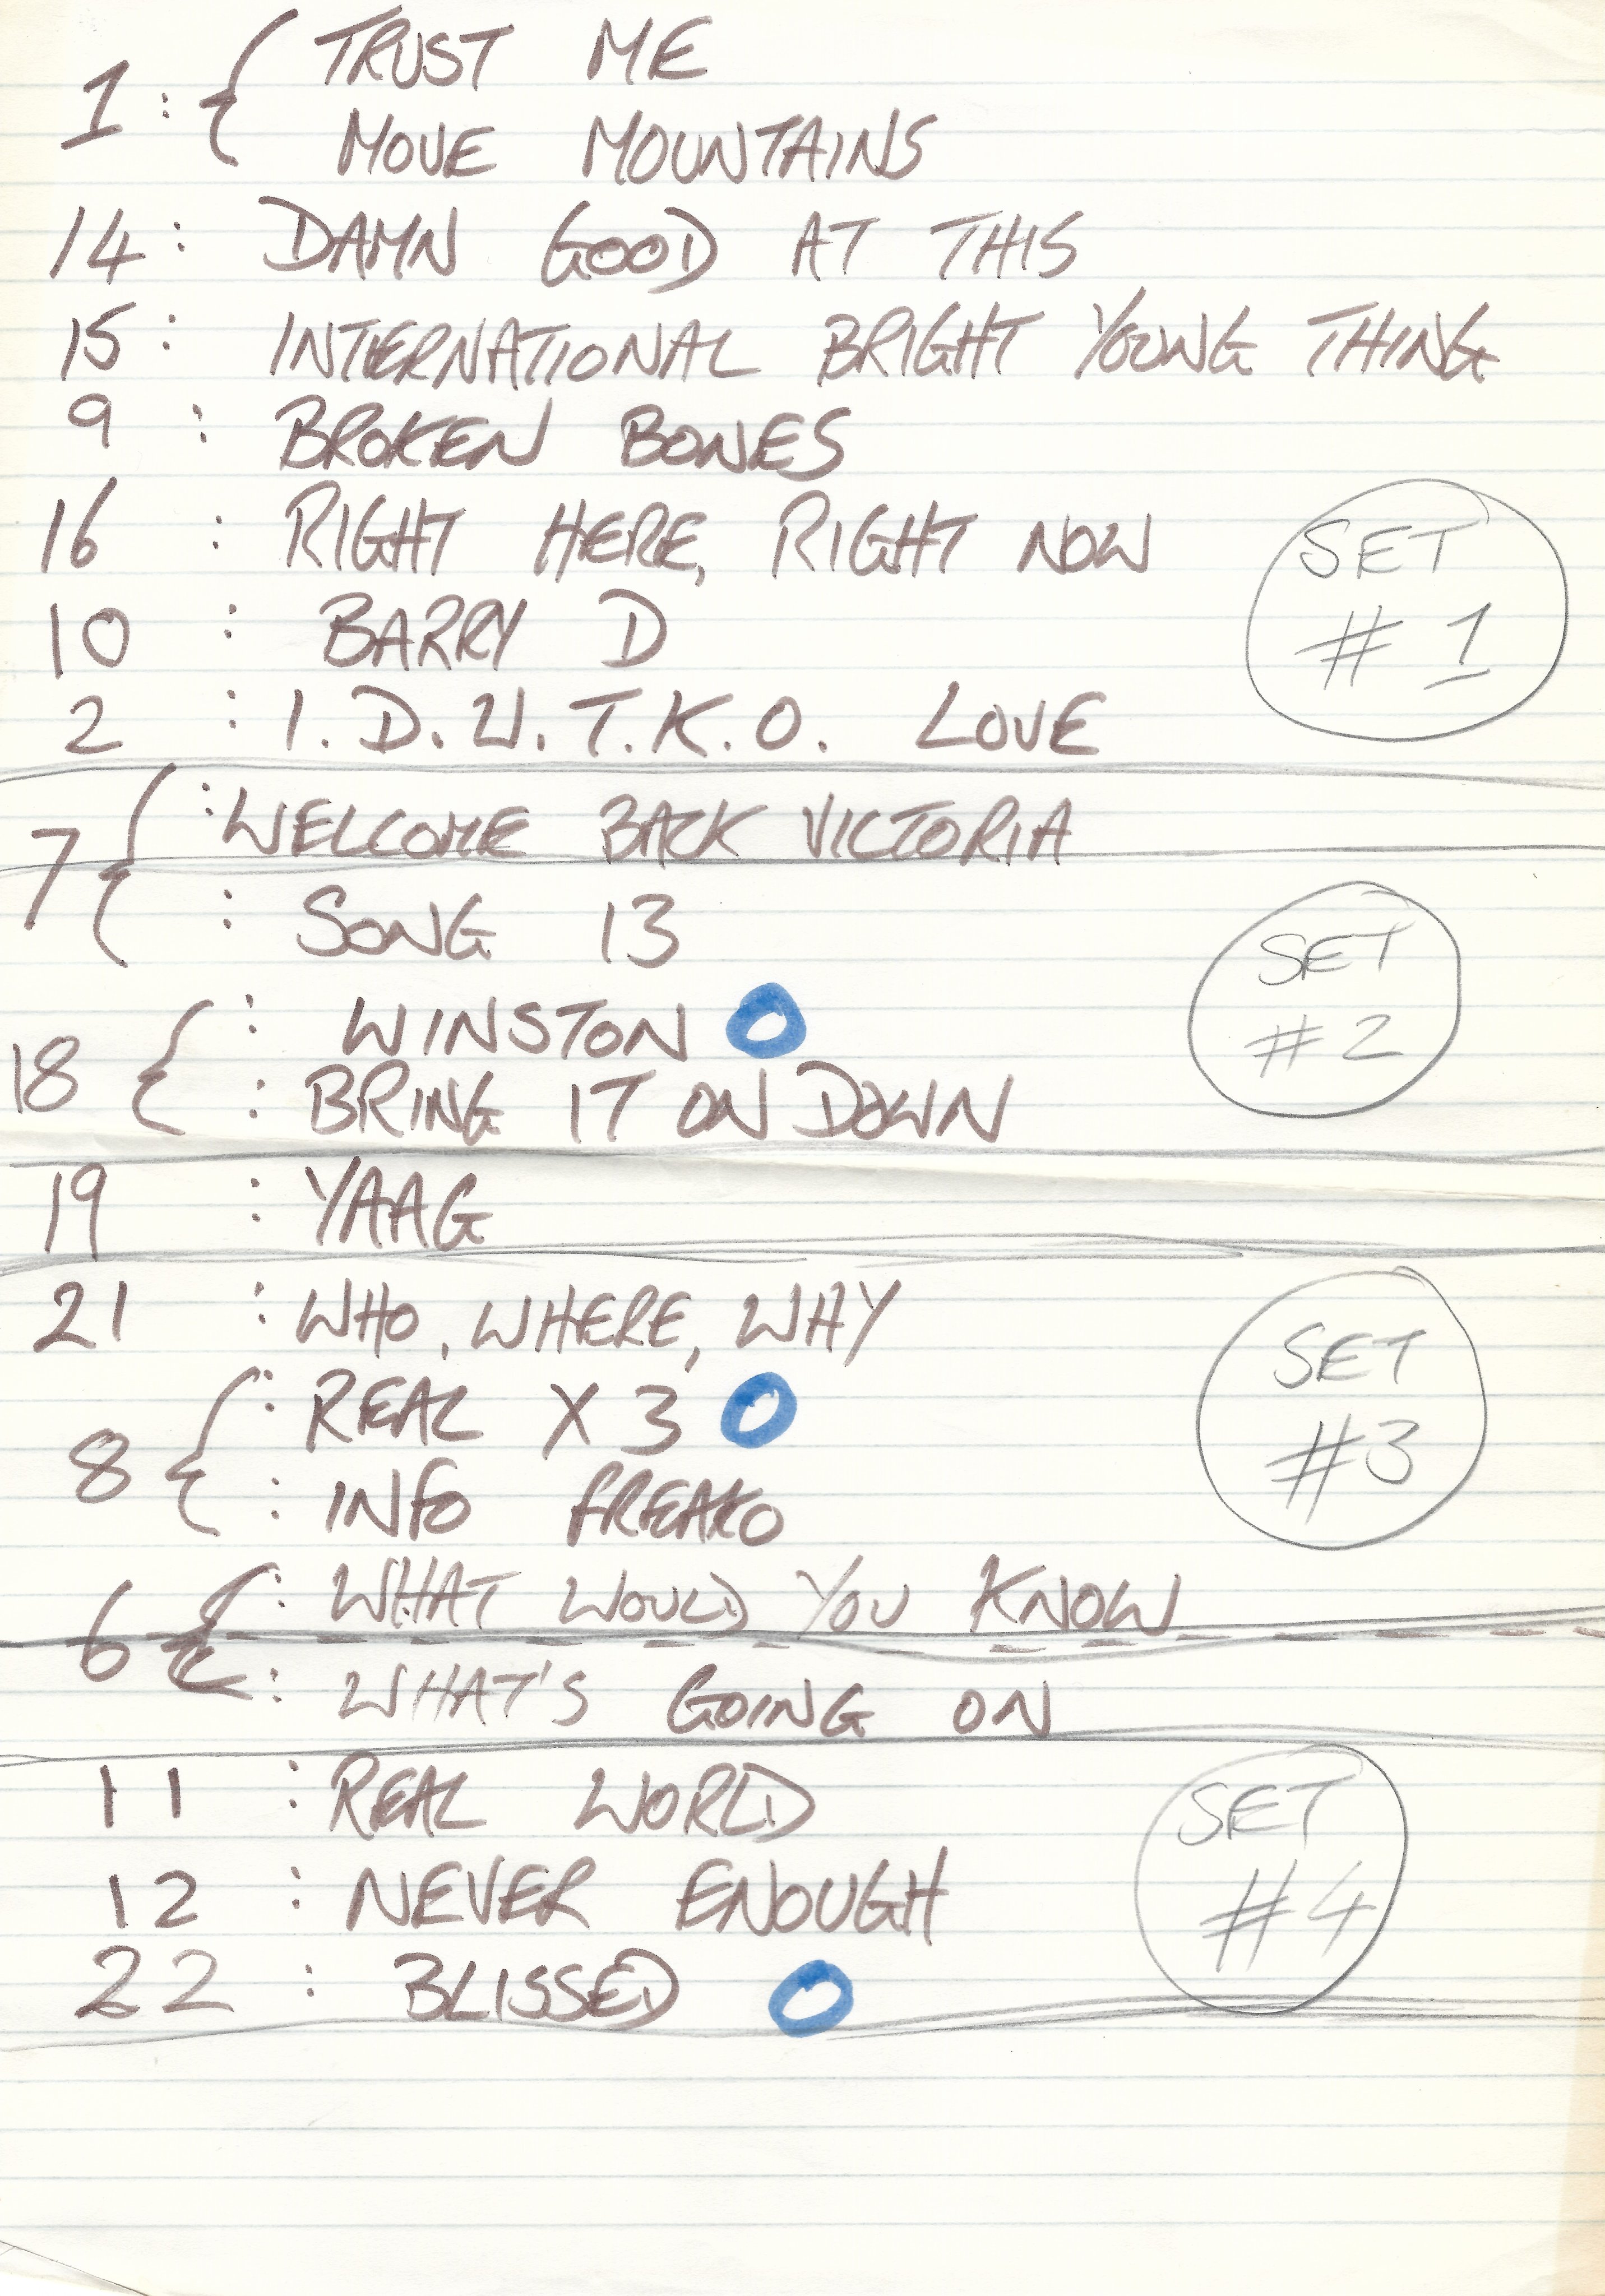 1 : { TRUST ME
MOVE MOUNTAINS
14 : DAMN GOOD AT THIS
15 : INTERNATIONAL BRIGHT YOUNG THING
9 : BROKEN BONES
16 : RIGHT HERE, RIGHT NOW
SET
# 1
10 : BARRY D
2 : I.D.U.T.K.O. LOVE
7 { : WELCOME BACK VICTORIA
: SONG 13
SET
#2
18 { : WINSTON O
: BRING IT ON DOWN
19 : YAAG
21 : WHO, WHERE, WHY
SET
#3
8 { : REAL X 3 O
: INFO FREAKO
6 { : WHAT WOULD YOU KNOW
: WHAT'S GOING ON
11 : REAL WORLD
SET
#4
12 : NEVER ENOUGH
22 : BLISSED O